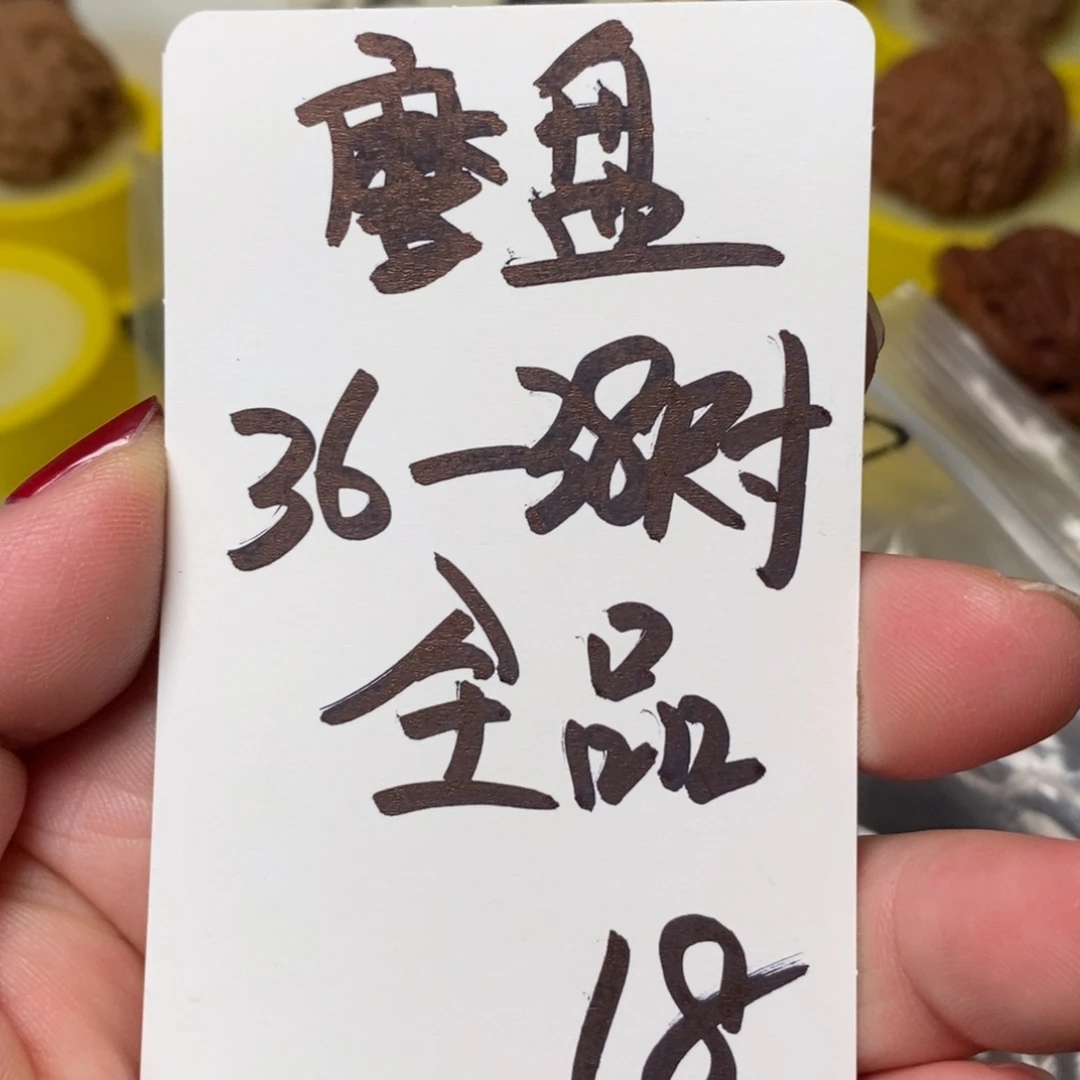 磨盘
36-38对
全品
18